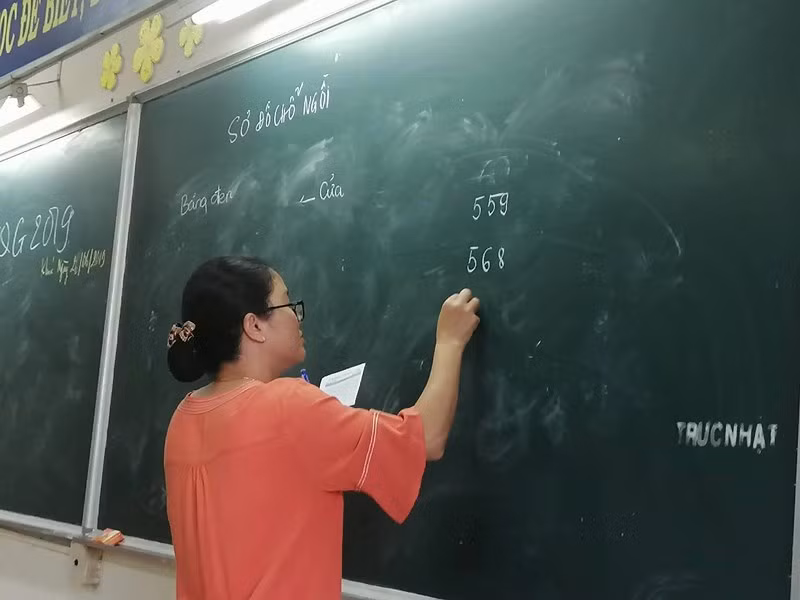 ỌC ĐỂ BIẾT,
SƠ ĐỒ CHỖ NGỒI
Bảng đen
← Cửa
559
568
QG 2019
Ngày 24/06/2019
TRỰC NHẬT